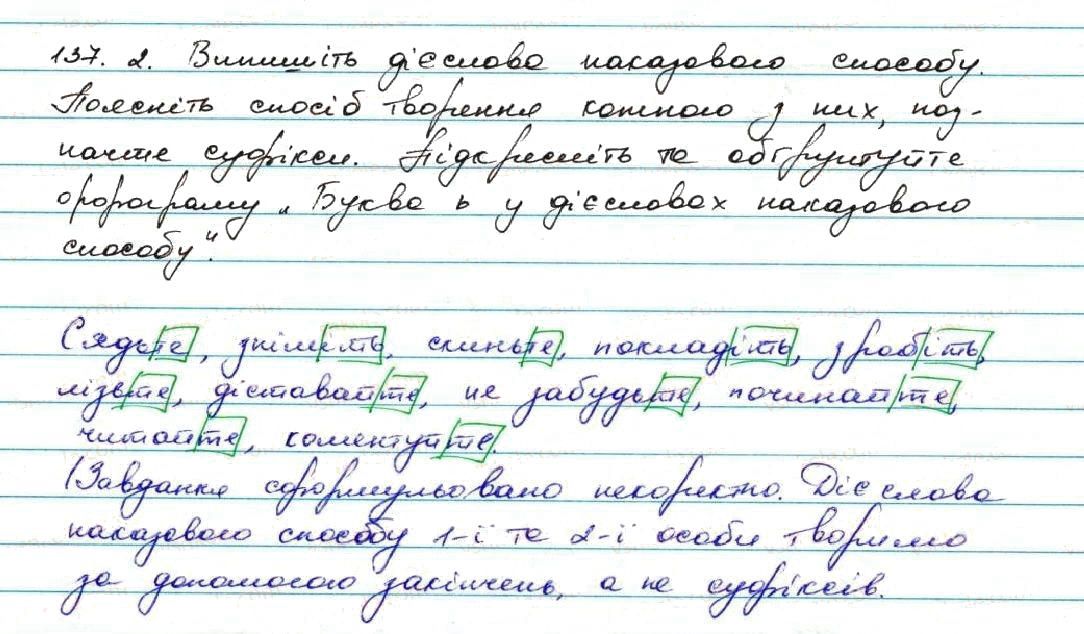 137. 2. Випишіть дієслова наказового способу.
Поясніть спосіб творення кожного з них, поз-
начте суфікси. Підкресліть та обґрунтуйте
орфограму „Буква ь у дієсловах наказового
способу".
Сядьте, зніміть, скиньте, покладіть, зробіть,
лізьте, діставайте, не забудьте, починайте,
читайте, коментуйте.
(Завдання сформульовано некоректно. Дієслова
наказового способу 1-ї та 2-ї особи творимо
за допомогою закінчень, а не суфіксів.